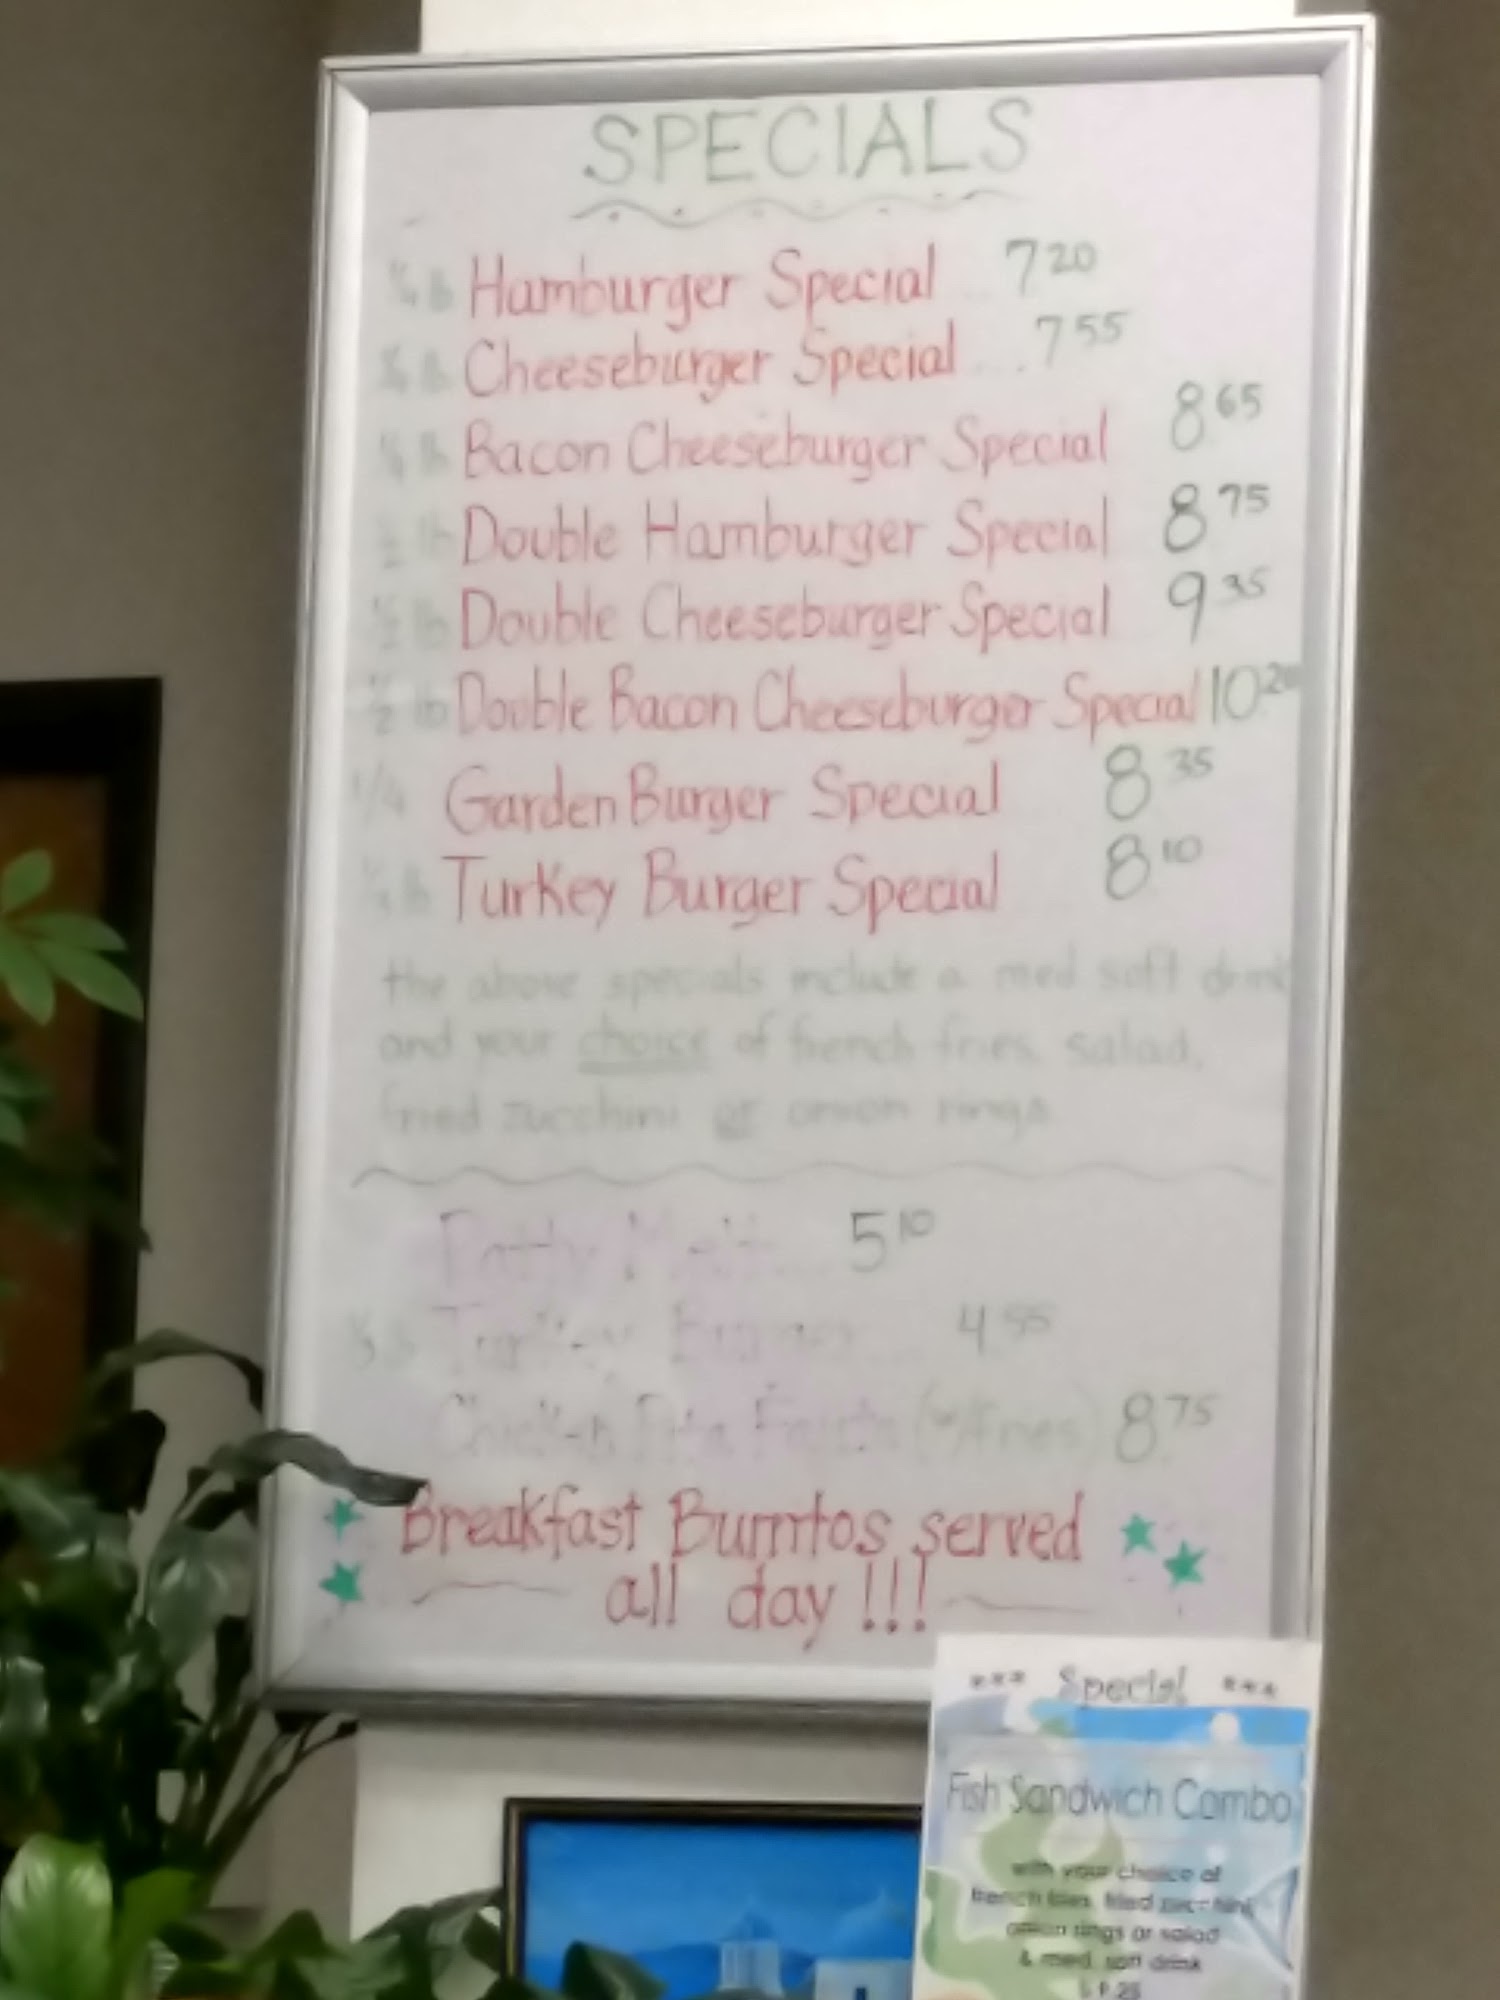 SPECIALS
1/4 lb Hamburger Special 7 20
1/4 lb Cheeseburger Special ... 7 55
1/4 lb Bacon Cheeseburger Special 8 65
1/2 lb Double Hamburger Special 8 75
1/2 lb Double Cheeseburger Special 9 35
1/2 lb Double Bacon Cheeseburger Special 10.20
1/4 GardenBurger Special 8 35
1/4 lb Turkey Burger Special 8 10
the above specials include a med soft drink
and your choice of french fries, salad,
fried zucchini or onion rings
Patty Melt 5 10
1/3 lb Turkey Burger 4 55
Chicken Pita (w/fries) 8 75
Breakfast Burritos served
all day!!!
*** Special ***
Fish Sandwich Combo
with your choice of
french fries, fried zucchini,
onion rings or salad
& med. soft drink
$9.25